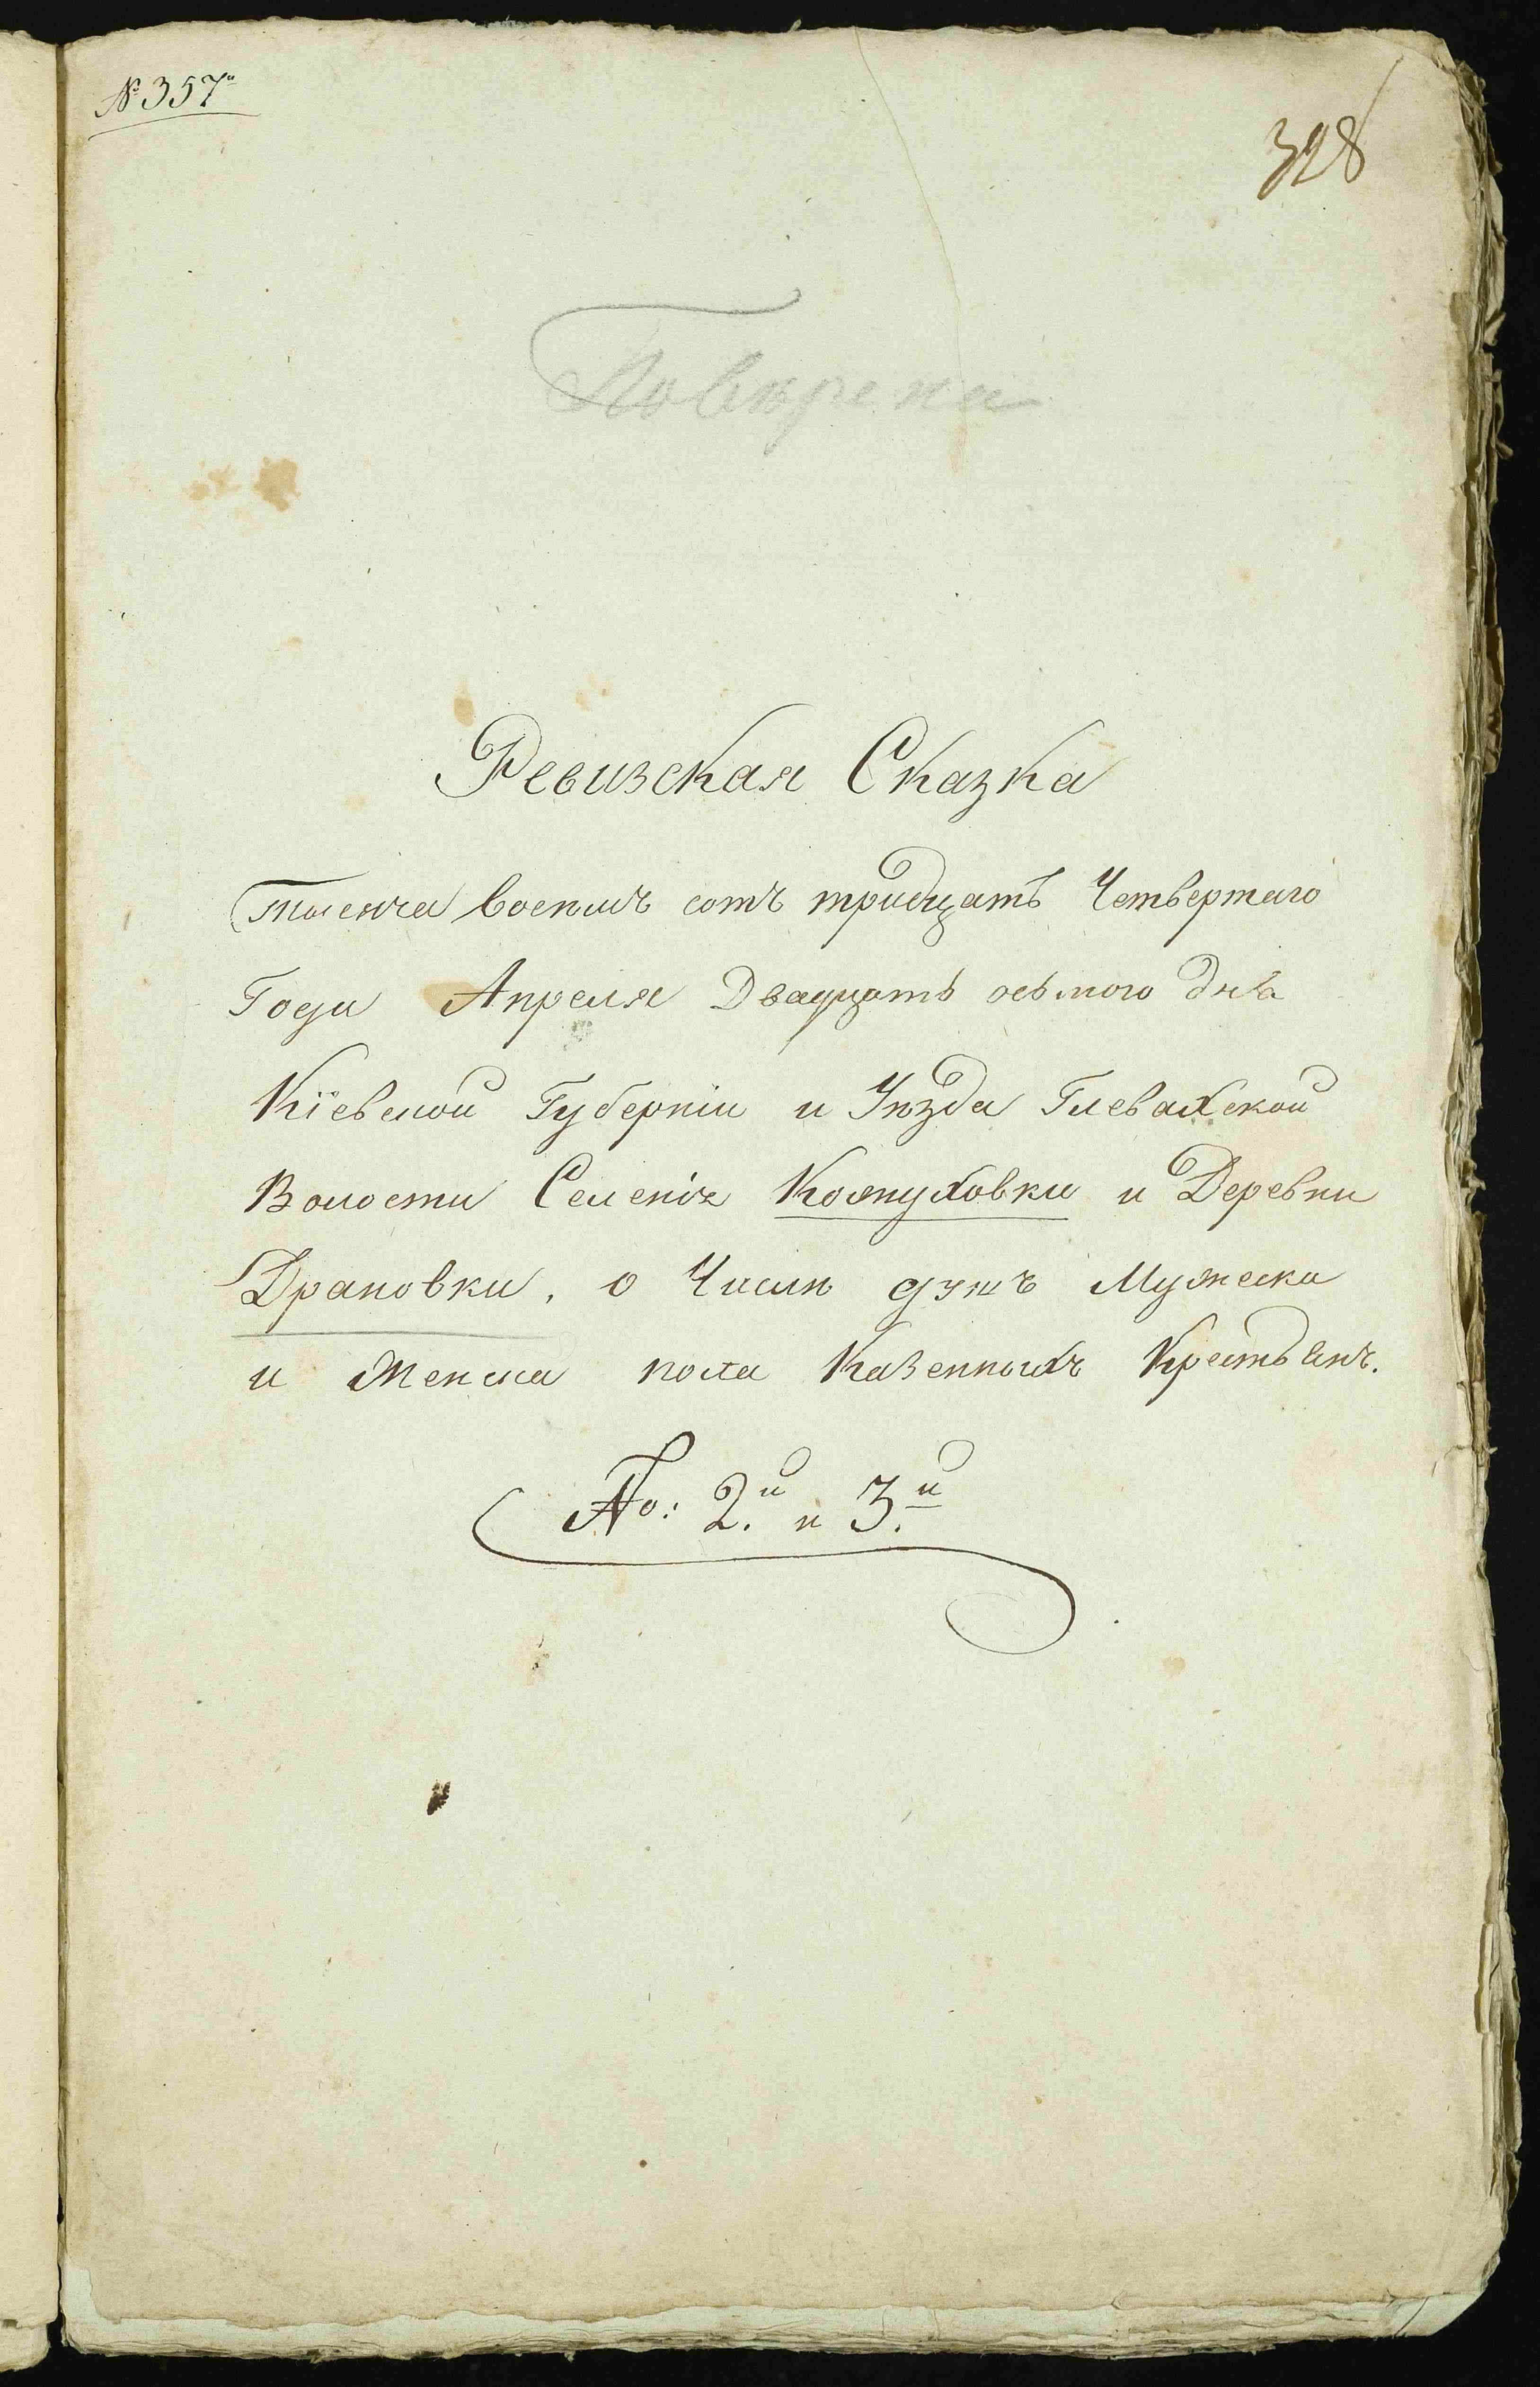 № 357
328
Повѣрена
Ревизская Сказка
Тысяча восемь сотъ тридцать Четвертаго
Года Апреля Двадцать осьмого дня
Кіевской Губерніи и Уѣзда Глевахской
Волости Селенія Кожуховки и Деревни
Драновки, о Числѣ душъ Мужеска
и Женска пола Казенныхъ Крестьянъ.
По: 2.й и 3.й